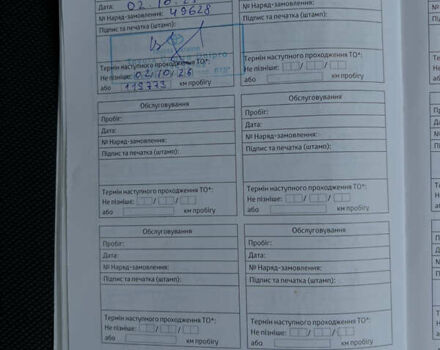 Дата: 02.10.2
№ Наряд-замовлення: 49628
Підпис та печатка (штамп):
Дніпро
Термін наступного проходження ТО*:
Не пізніше: 02/10/26
або 119773 км пробігу
Термін наступного проходження ТО*:
Не пізніше: / /
або км пробігу
Обслуговування
Пробіг:
Дата:
№ Наряд-замовлення:
Підпис та печатка (штамп):
Термін наступного проходження ТО*:
Не пізніше: / /
або км пробігу
Обслуговування
Пробіг:
Дата:
№ Наряд-замовлення:
Підпис та печатка (штамп):
Термін наступного проходження ТО*:
Не пізніше: / /
або км пробігу
Обслуговування
Пробіг:
Дата:
№ Наряд-замовлення:
Підпис та печатка (штамп):
Термін наступного проходження ТО*:
Не пізніше: / /
або км пробігу
Обслуговування
Пробіг:
Дата:
№ Наряд-замовлення:
Підпис та печатка (штамп):
Термін наступного проходження ТО*:
Не пізніше: / /
або км пробігу